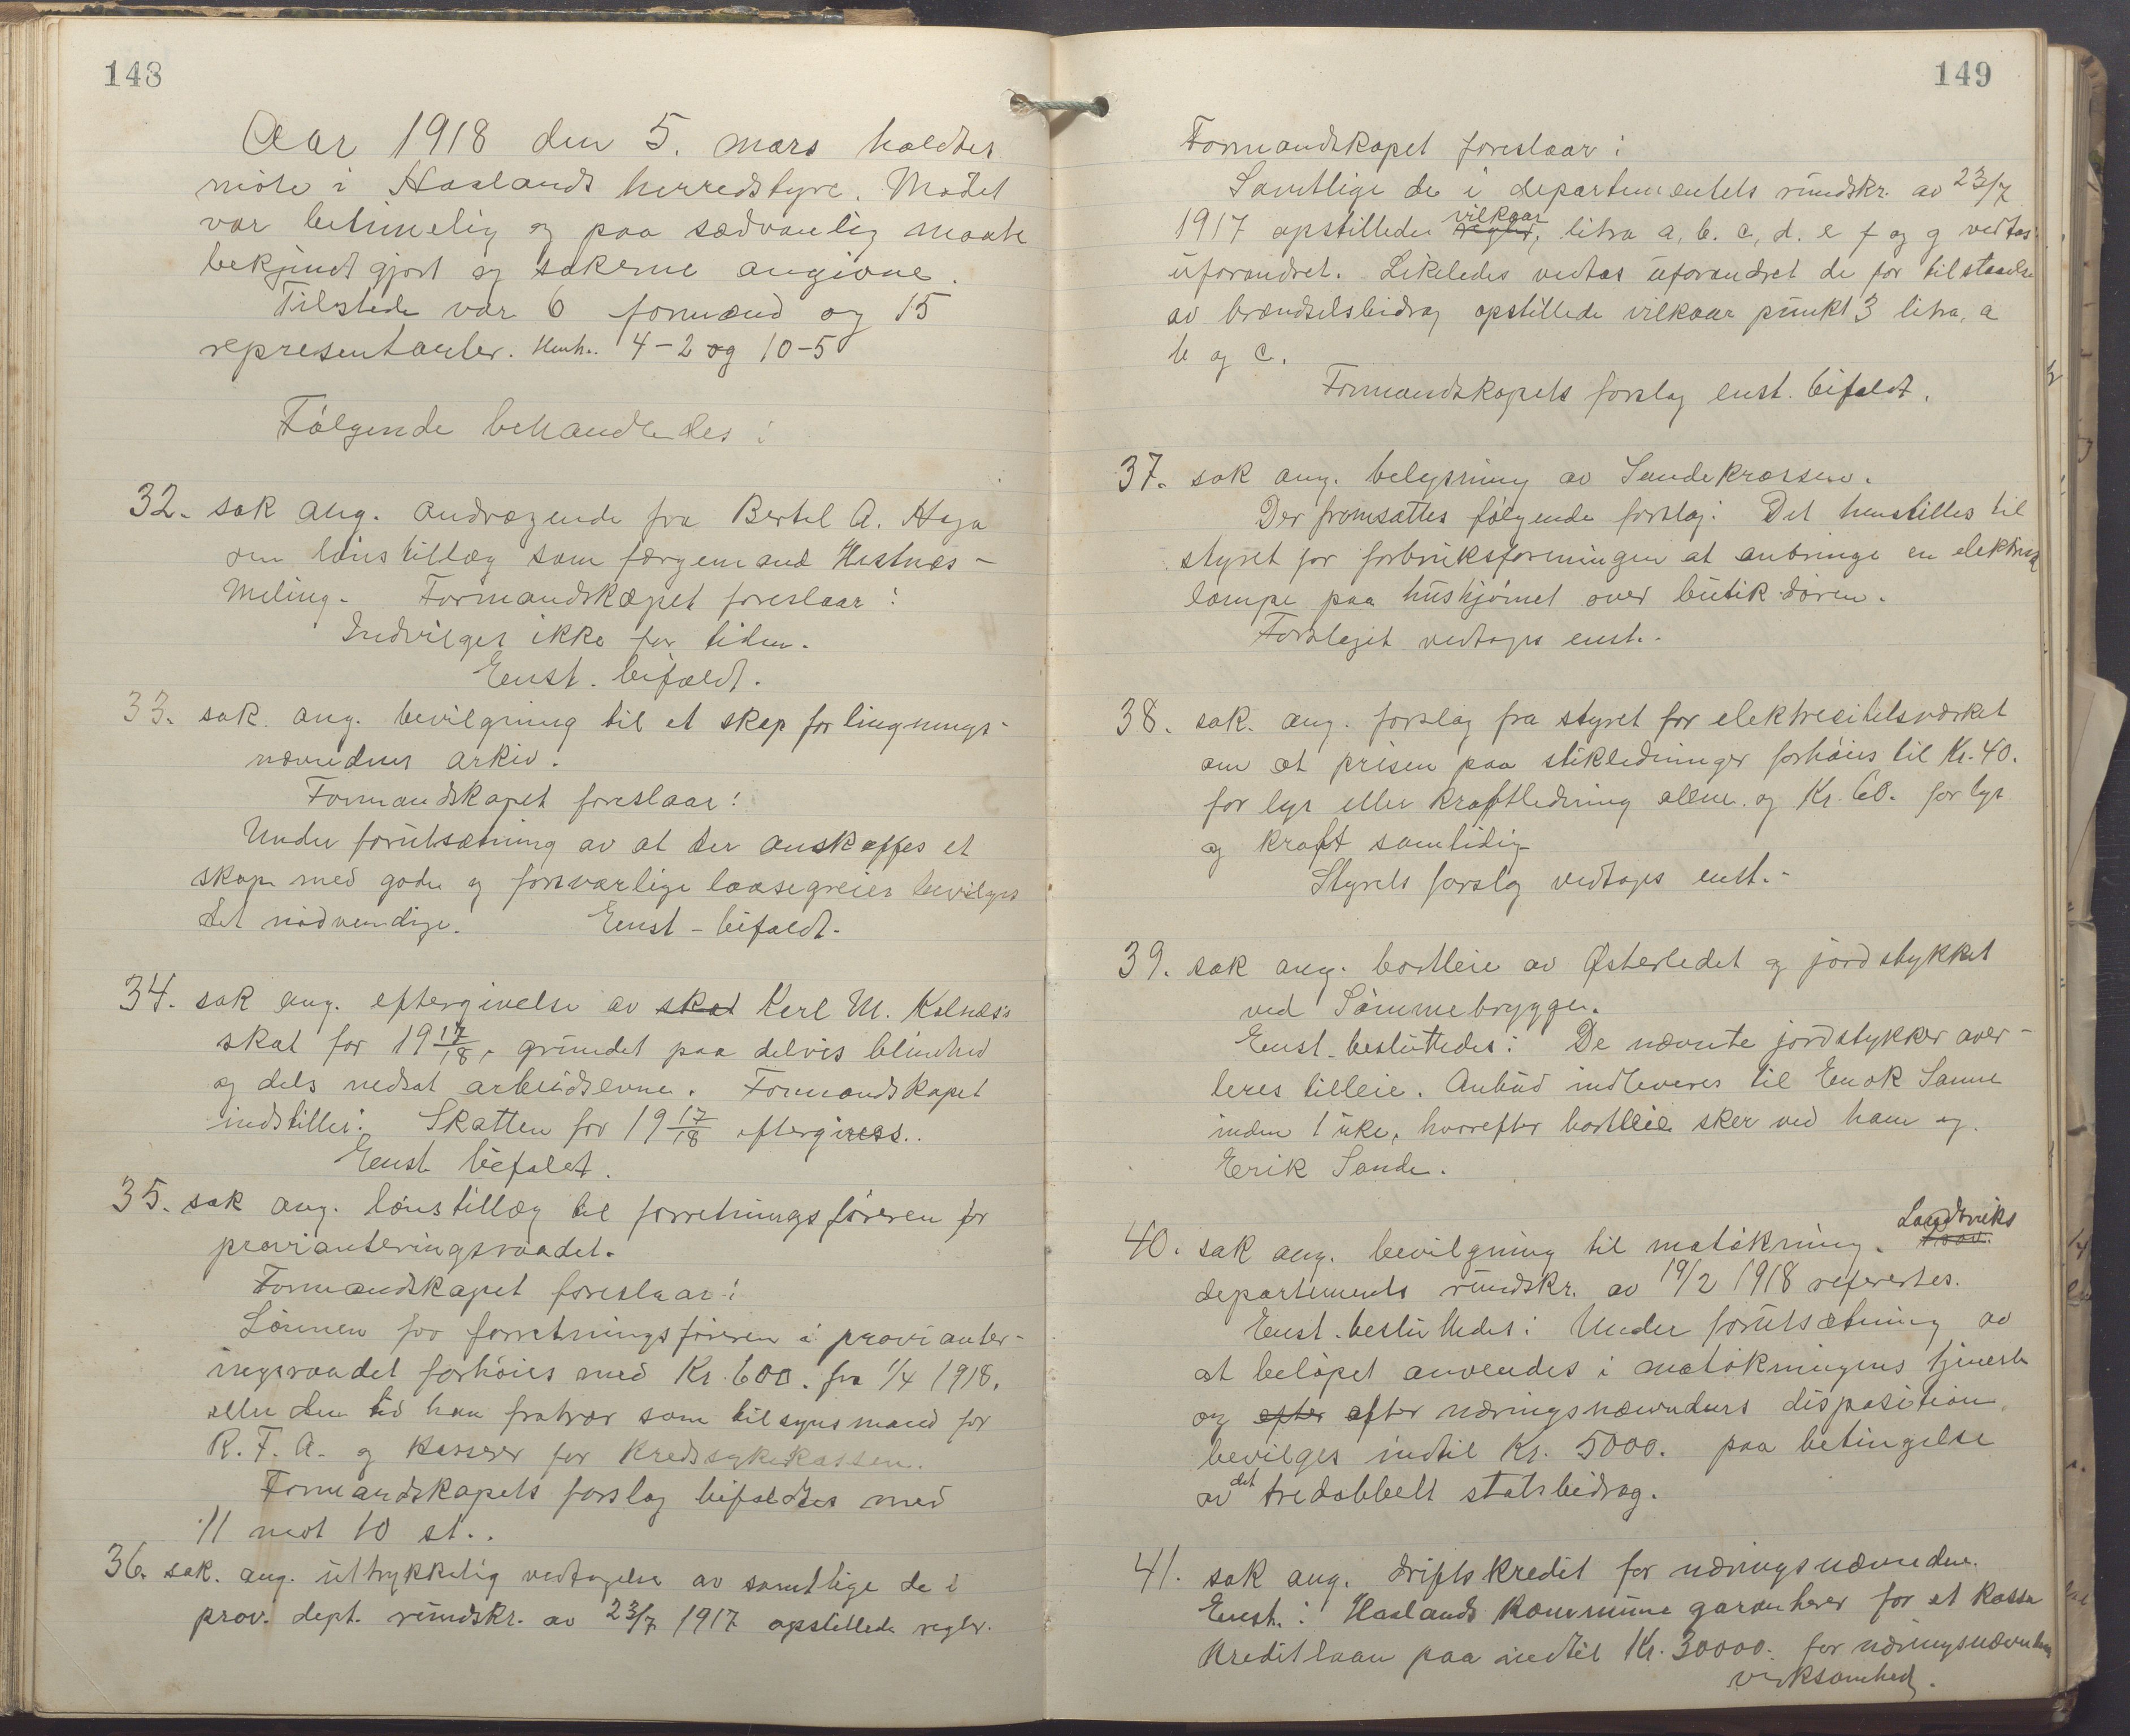 148
Aar 1918 den 5. mars holdtes
möte i Haalands herredstyre. Mödet
var betimelig og paa sedvanlig maate
bekjendtgjort og sakerne angivne.
Tilstede var 6 formænd og 15
representanter. Henh. 4-2 og 10-5
Fölgende behandledes:
32. sak ang. andragende fra Bertel A. Haga
om lönstillæg som færgemand Hestnes-
Meling. Formandskapet foreslaar:
Indvilges ikke for tiden.
Enst. bifaldt.
33. sak. ang. bevilgning til et skap for lingnings-
nævndens arkiv.
Formandskapet foreslaar:
Under forutsætning av at der anskaffes et
skap med gode og forsvarlige laasegreier bevilges
det nödvendige. Enst- bifaldt.
34. sak ang. eftergivelse av skat Karl M. Kolnes's
skat for 19 17/18, grundet paa delvis blindhed
og dels nedsat arbeidsevne. Formandskapet
indstiller: Skatten for 19 17/18 eftergives.
Enst. bifaldt.
35. sak ang. lönstillæg til forretningsföreren for
provianteringsraadet.
Formandskapet foreslaar:
Lönnen for forretningsföreren i provianter-
ingsraadet forhöies med Kr. 600. fra 1/4 1918.
eller den tid han fratrær som tilsynsmand for
R. F. A. og kasserer for Kredssykekassen.
Formandskapets forslag bifaldtes med
11 mot 10 st..
36. sak. ang. uttrykkelig vedtagelse av samtlige de i
prov. dept. rundskr. av 23/7 1917 opstillede regler.
149
Formandskapet foreslaar:
Samtlige de i departementets rundskr. av 23/7
vilkaar
1917 opstillede regler, litra a, b. c, d. e f og g vedtas
uforandret. Likeledes vedtas uforandret de for tilstaaelse
av brændselsbidrag opstillede vilkaar punkt 3 litra, a
b og c.
Formandskapets forslag enst. bifaldt.
37. sak ang. belysning av Sandekrossen.
Der fremsattes fölgende forslag: Det henstilles til
styret for forbruksforeningen at anbringe en elektrisk
lampe paa hushjörnet over butikdören.
Forslaget vedtoges enst.
38. sak. ang. forslag fra styret for elektrecitetsverket
om at prisen paa stikledninger forhöies til Kr. 40.
for lys eller kraftledning alene. og Kr. 60. for lys
og kraft samtidig
Styrets forslag vedtoges enst.-
39. sak ang. bortleie av Østerledet og jordstykket
ved Sömmebryggen.
Enst. besluttedes: De nævnte jordstykker aver-
teres tilleie. Anbud indleveres til Enok Sömme
inden 1 uke, hvorefter bortleie sker ved ham og
Erik Sande.
40. sak ang. bevilgning til matökning. Landbruks
prov.
departements rundskr. av 19/2 1918 referertes.
Enst. besluttedes: Under forutsætning av
at belöpet anvendes i matökningens tjeneste
og efter efter næringsnævndens disposition
bevilges indtil Kr. 5000. paa betingelse
av det tredobbelt statsbidrag.
41. sak ang. driftskredit for næringsnævnden.
Enst.: Haalands kommune garanterer for et kasse
kreditlaan paa indtil Kr. 30000. for næringsnævndens
virksomhed.